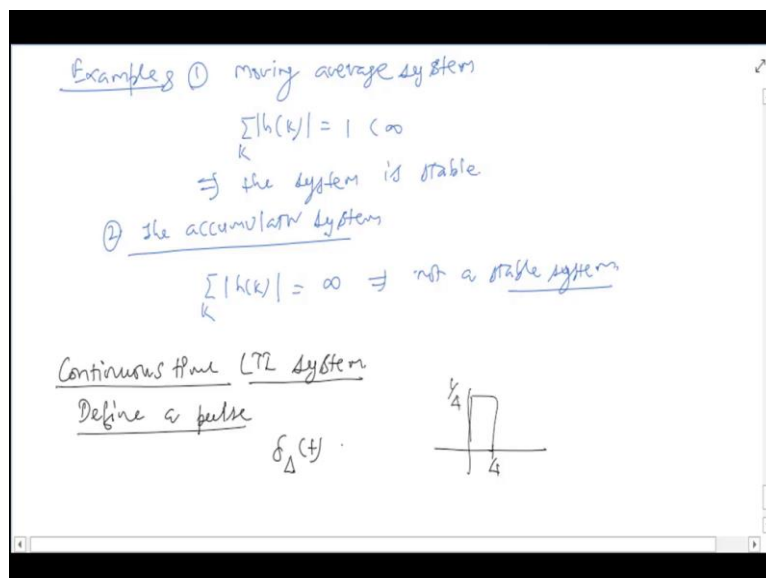 Examples ① moving average system
Σ|h(k)| = 1 < ∞
K
⇒ the system is stable
② The accumulator system
Σ|h(k)| = ∞ ⇒ not a stable system
K
Continuous time LTI system
Define a pulse
1/Δ
δ_Δ(t)
Δ